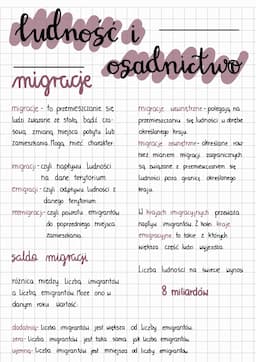 ludność i
osadnictwo
migracje
migracje - to przemieszczanie się
ludzi związane ze stałą, bądź cza-
sową zmianą miejsca pobytu lub
zamieszkania. Mogą mieć charakter:
imigracji - czyli napływu ludności
na dane terytorium
emigracji - czyli odpływu ludności z
danego terytorium
reemigracji - czyli powrotu emigrantów
do poprzedniego miejsca
zamieszkania.
saldo migracji
różnica między liczbą imigrantów
a liczbą emigrantów. Może ono w
danym roku wartość:
migracje wewnętrzne - polegają na
przemieszczaniu się ludności w obrębie
określonego kraju.
migracje zewnętrzne - określane rów
nież mianem migracji zagranicznych
są związane z przemieszczaniem się
ludności poza granicę określonego
kraju.
W krajach imigracyjnych przeważa
napływ imigrantów. Z kolei kraje
emigracyjne to takie z których
większa część ludzi wyjeżdża.
Liczba ludności na świecie wynosi
8 miliardów
dodatnią - liczba imigrantów jest większa od liczby emigrantów.
zero - liczba imigrantów jest taka sama jak liczba emigrantów.
ujemną - liczba imigrantów jest mniejsza od liczby emigrantów.